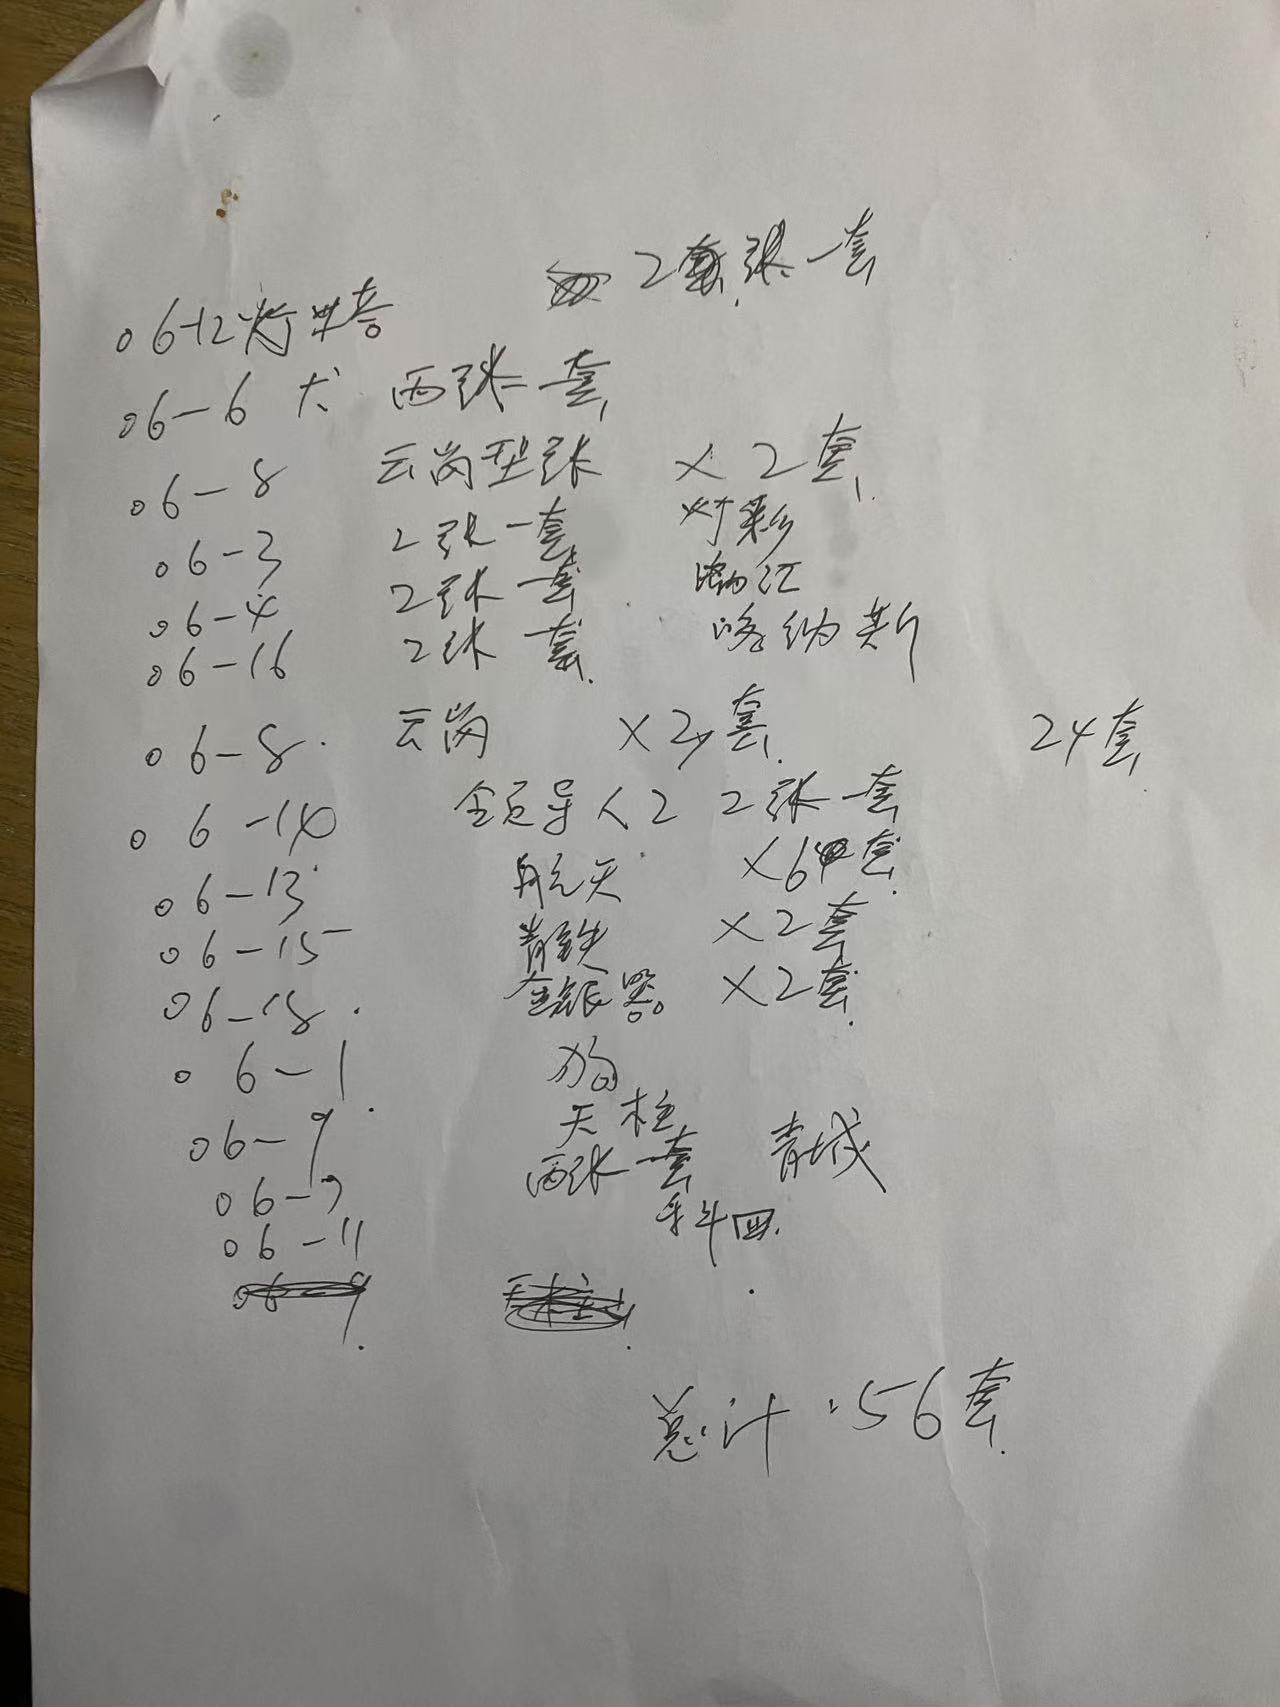 06-12 2张一套
06-6 犬 两张一套
06-8 云岗型张 ×2套
06-3 2张一套 灯彩
06-4 2张一套 漓江
06-16 2张一套 喀纳斯
06-8 云岗 ×2套 24套
06-14 2张一套
06-13 航天 ×6套
06-15 青铁 ×2套
06-18 金银器 ×2套
06-1 狗
06-9 天柱
06-7 两张一套 青城
06-11 科四
总计:56套